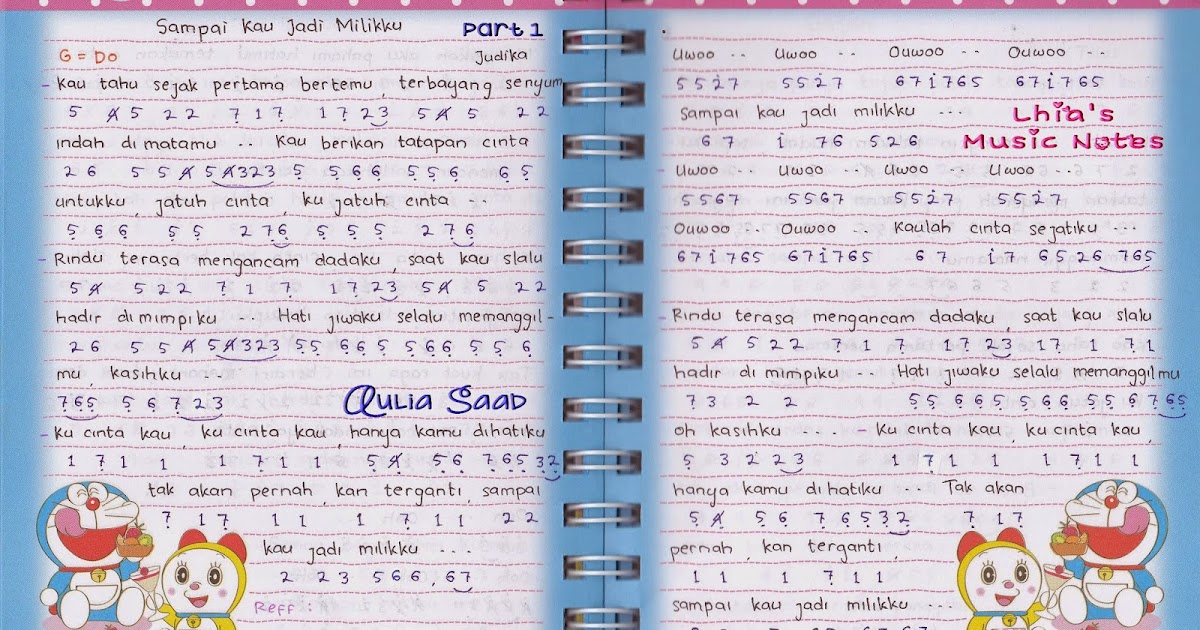 Sampai Kau Jadi Milikku Part 1
G = Do Judika
- Kau tahu sejak pertama bertemu, terbayang senyum
5 4̸ 5 2 2 7̣ 1 7̣ 1 7̣ 2 3 5 4̸ 5 2 2
indah di matamu .. Kau berikan tatapan cinta
2 6 5 5 4̸ 5 4̸ 3 2 3 5̣ 5̣ 6̣ 6̣ 5̣ 5̣ 6̣ 6̣ 5̣
untukku, jatuh cinta, ku jatuh cinta ...
5̣ 6̣ 6̣ 5̣ 5̣ 2 7̣ 6̣ 5̣ 5̣ 5̣ 2 7̣ 6̣
- Rindu terasa mengancam dadaku, saat kau slalu
5 4̸ 5 2 2 7̣ 1 7̣ 1 7̣ 2 3 5 4̸ 5 2 2
hadir di mimpiku ... Hati jiwaku selalu memanggil -
2 6 5 5 4̸ 5 4̸ 3 2 3 5̣ 5̣ 6̣ 6̣ 5̣ 5̣ 6̣ 6̣ 5̣ 5̣ 6̣
mu, kasihku ...
7̣ 6̣ 5̣ 5̣ 6̣ 7̣ 2 3
Aulia Saad
- Ku cinta kau, ku cinta kau hanya kamu dihatiku
1 7̣ 1 1 1 7̣ 1 1 5̣ 4̸̣ 5̣ 6̣ 7̣ 6̣ 5̣ 3̣ 2̣
tak akan pernah kan terganti, sampai
7̣ 1 7̣ 1 1 1 7̣ 1 1 2 2
kau jadi milikku ....
2 2 3 5 6 6 6 7
Reff :
Uwoo .. Uwoo .. Ouwoo .. Ouwoo ..
5 5 2̇ 7 5 5 2̇ 7 6 7 1̇ 7 6 5 6 7 1̇ 7 6 5
Sampai kau jadi milikku ...
6 7 1̇ 7 6 5 2 6
Lhia's
Music Notes
- Uwoo .. Uwoo .. Uwoo .. Uwoo ...
5 5 6 7 5 5 6 7 5 5 2̇ 7 5 5 2̇ 7
Ouwoo ... Ouwoo ... Kaulah cinta sejatiku ...
6 7 1̇ 7 6 5 6 7 1̇ 7 6 5 6 7 1̇ 7 6 5 2 6 7 6 5
- Rindu terasa mengancam dadaku, saat kau slalu
5 4̸ 5 2 2 7̣ 1 7̣ 1 7̣ 2 3 1 7̣ 1 7̣ 1
hadir di mimpiku ... Hati jiwaku selalu memanggilmu
7̣ 3 2 2 5̣ 5̣ 6̣ 6̣ 5̣ 5̣ 6̣ 6̣ 5̣ 5̣ 6̣ 7̣ 6̣ 5̣
oh kasihku .... - Ku cinta kau, ku cinta kau,
5̣ 3 2 2 3 1 7̣ 1 1 1 7̣ 1 1
hanya kamu di hatiku Tak akan
5̣ 4̸̣ 5̣ 6̣ 7̣ 6̣ 5̣ 3̣ 2̣ 7̣ 1 7̣
pernah, kan terganti
1 1 1 7̣ 1 1
sampai kau jadi milikku ...